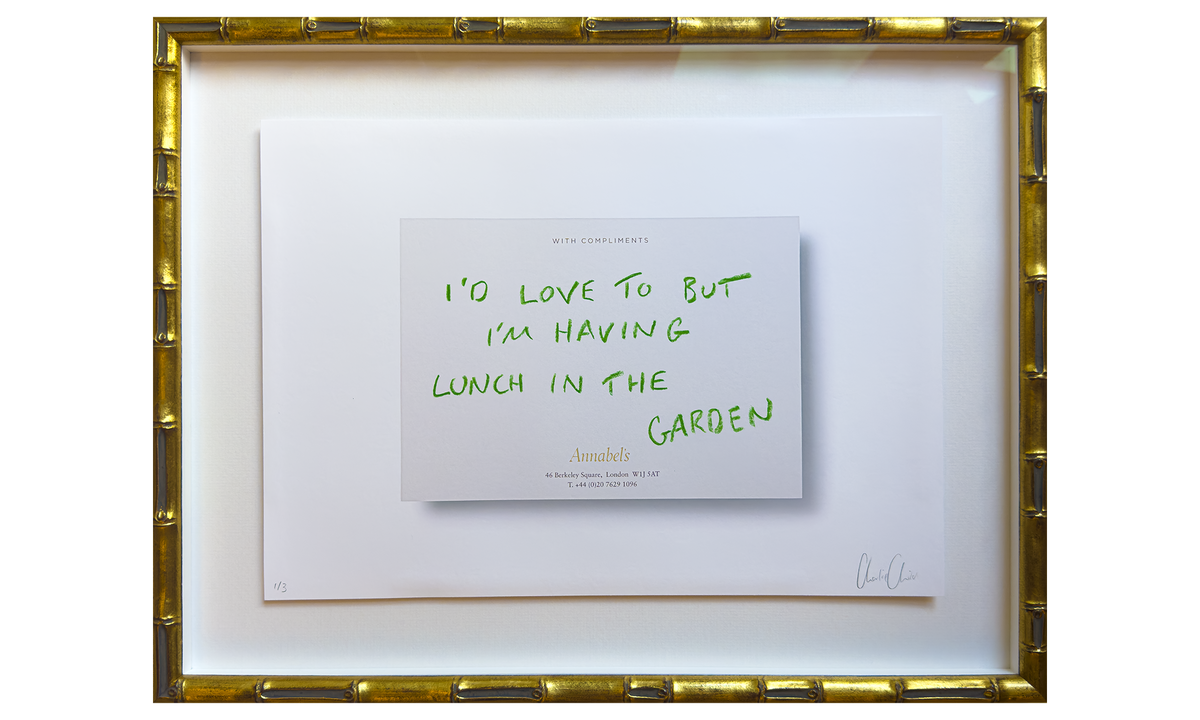 WITH COMPLIMENTS
I'D LOVE TO BUT
I'M HAVING
LUNCH IN THE
GARDEN
Annabel's
46 Berkeley Square, London W1J 5AT
T. +44 (0)20 7629 1096
1/3